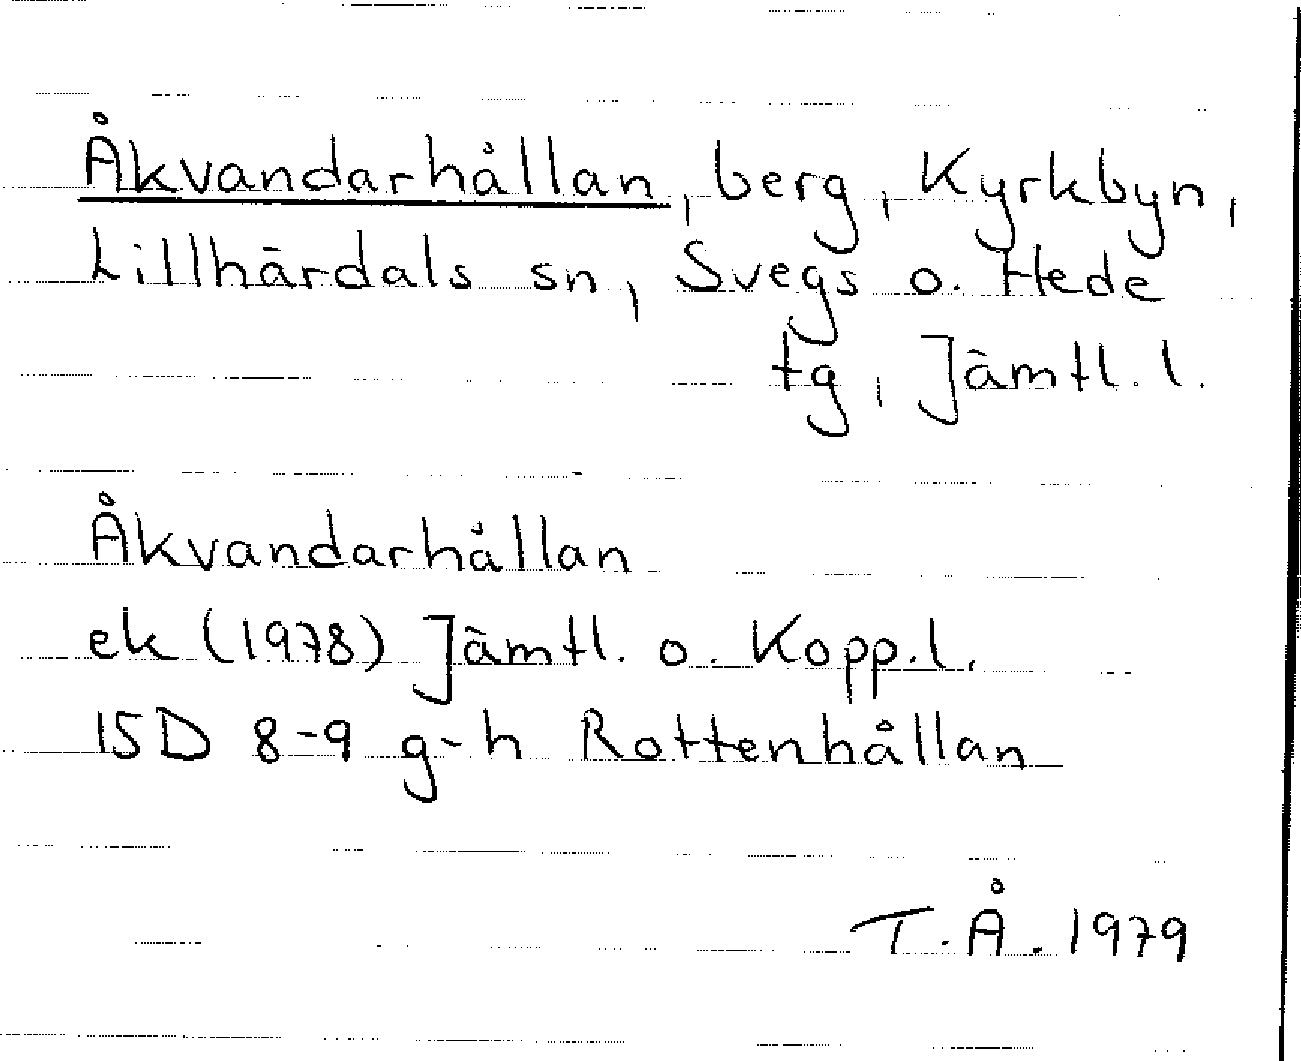 Åkvandarhållan, berg, Kyrkbyn,
Lillhärdals sn, Svegs o. Hede
tg, Jämtl. l.
Åkvandarhållan
ek (1978) Jämtl. o. Kopp. l.
15D 8-9 g-h Rottenhållan
T. Å. 1979